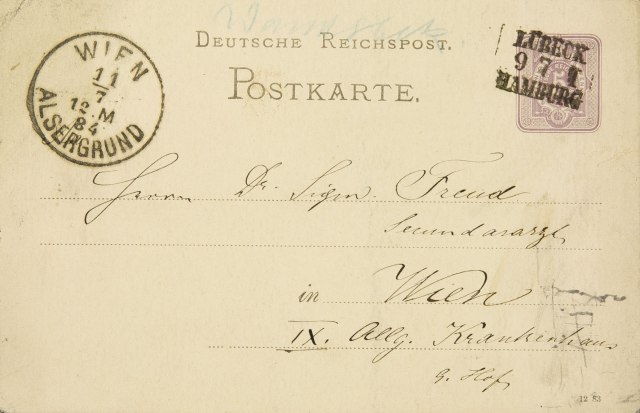 DEUTSCHE REICHSPOST.
POSTKARTE.
WIEN
11/7
12.M
84
ALSERGRUND
LÜBECK
9 7 I
HAMBURG
Herrn Dr. Sigm. Freud
Secundararzt
in Wien
IX. Allg. Krankenhaus
9. Hof
12 83